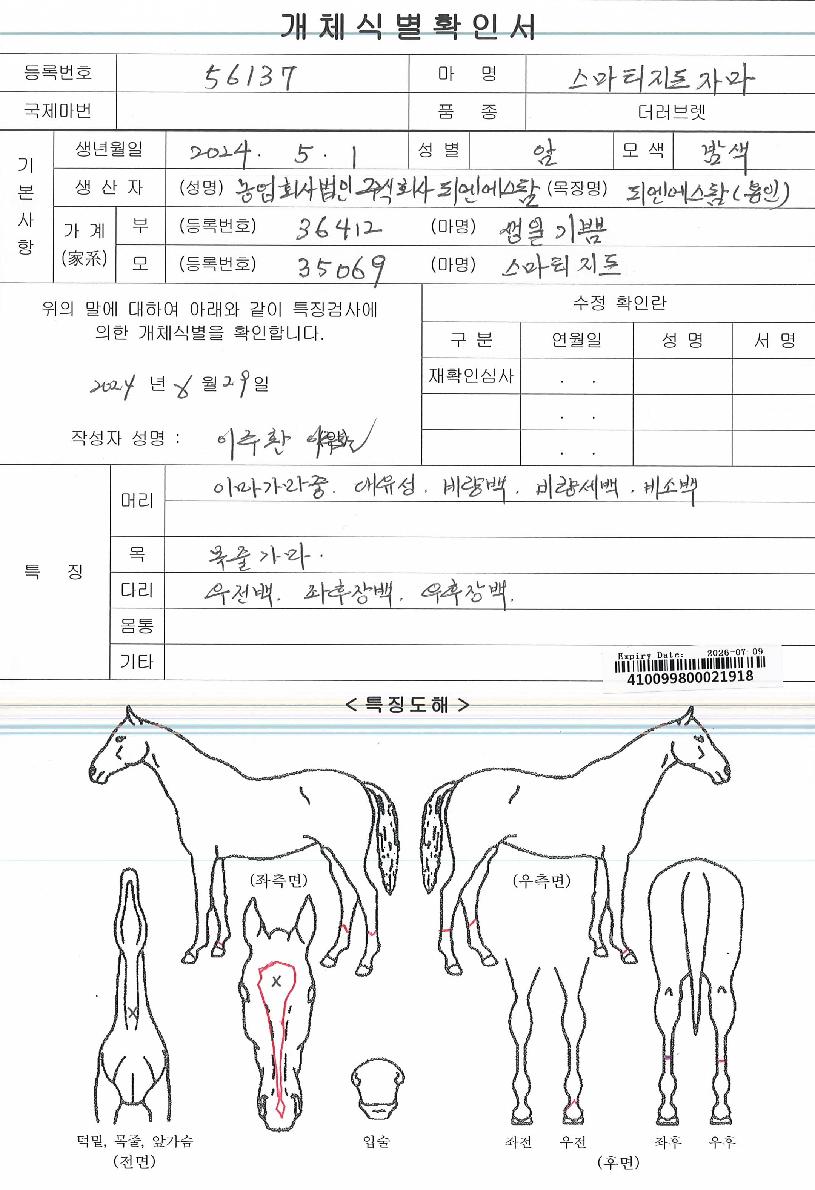 개체식별확인서
등록번호 56137 마 명 스마티지드자마
국제마번 품 종 더러브렛
기본사항
생년월일 2024. 5. 1 성 별 암 모 색 밤색
생 산 자 (성명) 농업회사법인 주식회사 디엔에스팜 (목장명) 디엔에스팜(용인)
가 계 (家系)
부 (등록번호) 36412 (마명) 썸일기쁨
모 (등록번호) 35069 (마명) 스마티지드
위의 말에 대하여 아래와 같이 특징검사에
의한 개체식별을 확인합니다.
2024 년 8 월 29 일
작성자 성명 : 이주환
수정 확인란
구 분 연월일 성 명 서 명
재확인심사 . .
. .
. .
특 징
머리 이마가마중. 대유성. 비량백. 비량세백. 비소백
목 목줄가마.
다리 우전백. 좌후장백. 우후장백.
몸통
기타
Expiry Date: 2026-07-09
410099800021918
< 특징도해 >
(좌측면) (우측면)
X
X
턱밑, 목줄, 앞가슴 입술 좌전 우전 좌후 우후
(전면) (후면)